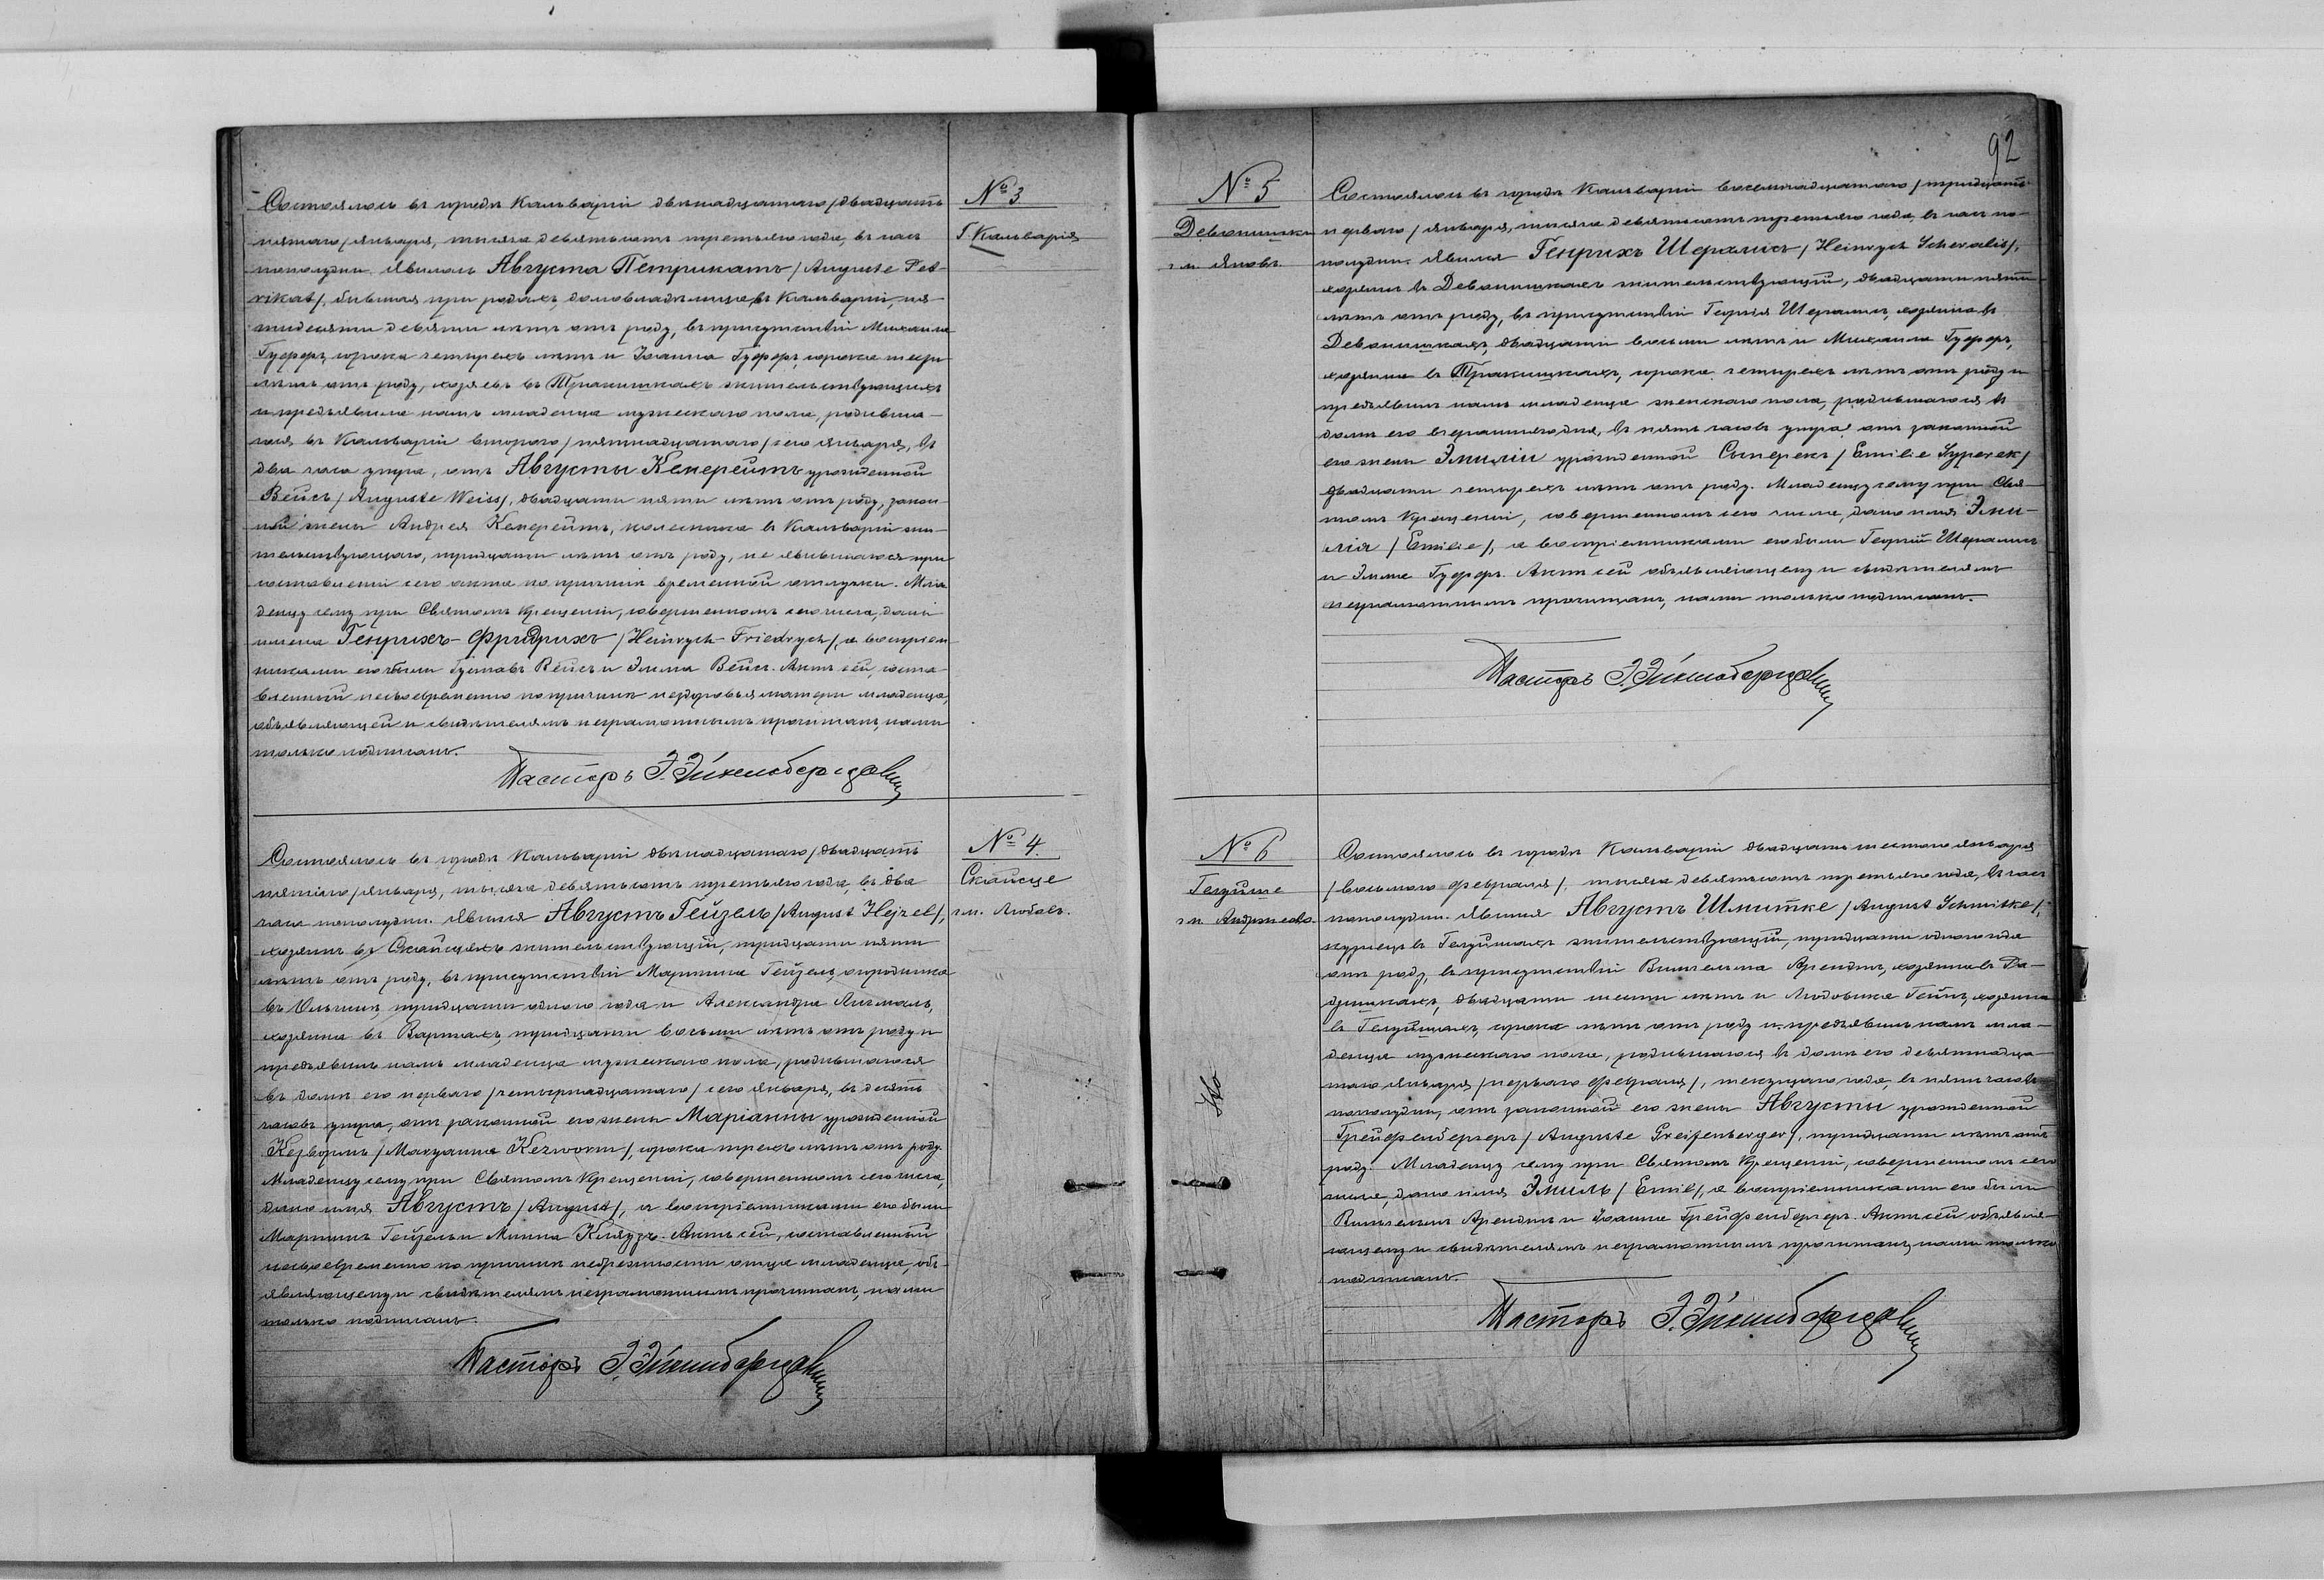 № 3
Г. Кальварія
Состоялось въ городѣ Кальваріи двѣнадцатаго /двадцать
пятаго/ января, тысяча девятьсотъ третьяго года, въ часъ
пополудни. Явилась Августа Петрикатъ /Auguste Pet-
rikat/, бывшая при родахъ, домовладѣлица въ Кальваріи, пя-
тидесяти девяти лѣтъ отъ роду, въ присутствіи Михаила
Гуферъ, сорока четырехъ лѣтъ и Іоанна Гуферъ, сорока
лѣтъ отъ роду, хозяевъ въ Тракишкахъ жительствующихъ
и предъявила намъ младенца мужескаго пола, родивша-
гося въ Кальваріи второго /пятнадцатаго/ сего января, въ
два часа утра, отъ Августы Кемерейтъ урожденной
Вейсъ /Auguste Weiss/, двадцати пяти лѣтъ отъ роду, закон-
ной жены Андрея Кемерейтъ, колесника въ Кальваріи жи-
тельствующаго, тридцати лѣтъ отъ роду, не явившагося при
составленіи сего акта по причинѣ временной отлучки. Мла-
денцу сему при Святомъ Крещеніи, совершенномъ сего числа, даны
имена Генрихъ-Фридрихъ /Heinrych-Friedrych/, а воспріем-
никами его были Густавъ Вейсъ и Эмма Вейсъ. Актъ сей, соста-
вленный несвоевременно по причинѣ нездоровья матери младенца,
объявляющей и свидѣтелямъ неграмотнымъ прочитанъ, нами
только подписанъ.
Пасторъ Э.
№ 4.
Скайсце
гм. Любовъ.
Состоялось въ городѣ Кальваріи двѣнадцатаго /двадцать
пятаго/ января, тысяча девятьсотъ третьяго года, въ два
часа пополудни. Явился Августъ Гейзель /August Hejzel/,
хозяинъ въ Скайсцяхъ жительствующій, тридцати пяти
лѣтъ отъ роду, въ присутствіи Мартина Гейзель, огородника
въ тридцати одного года и Александра
хозяина въ Вартахъ, тридцати восьми лѣтъ отъ роду и
предъявилъ намъ младенца мужескаго пола, родившагося
въ домѣ его перваго /четырнадцатаго/ сего января, въ десять
часовъ утра, отъ законной его жены Маріанны урожденной
Кезвормъ /Maryanna Kezworm/, сорока трехъ лѣтъ отъ роду.
Младенцу сему при Святомъ Крещеніи, совершенномъ сего числа,
дано имя Августъ /August/, а воспріемниками его были
Мартинъ Гейзель и Минна Актъ сей, составленный
несвоевременно по причинѣ небрежности отца младенца, объ-
являющему и свидѣтелямъ неграмотнымъ прочитанъ, нами
только подписанъ.
Пасторъ Э.
92
№ 5
Девонишки
гм. Яновъ.
Состоялось въ городѣ Кальваріи восемнадцатаго /тридцать
перваго/ января, тысяча девятьсотъ третьяго года, въ часъ по-
полудни. Явился Генрихъ Шералисъ /Heinrych Scheralis/,
хозяинъ въ Девонишкахъ жительствующій, двадцати пяти
лѣтъ отъ роду, въ присутствіи Георгія Шералисъ, хозяина въ
Девонишкахъ, двадцати восьми лѣтъ и Михаила Гуферъ,
хозяина въ Тракишкахъ, сорока четырехъ лѣтъ отъ роду и
предъявилъ намъ младенца женскаго пола, родившагося въ
домѣ его вчерашняго дня, въ пять часовъ утра, отъ законной
его жены Эмиліи урожденной Сыперекъ /Emilie Syperek/
двадцати четырехъ лѣтъ отъ роду. Младенцу сему при Свя-
томъ Крещеніи, совершенномъ сего числа, дано имя Эми-
лія /Emilie/, а воспріемниками его были Георгій Шералисъ
и Эмма Гуферъ. Актъ сей объявляющему и свидѣтелямъ
неграмотнымъ прочитанъ, нами только подписанъ.
Пасторъ Э.
№ 6
гм.
Состоялось въ городѣ Кальваріи двадцать шестого января
/восьмого февраля/, тысяча девятьсотъ третьяго года, въ часъ
пополудни. Явился Августъ Шмитке /August Schmitke/,
жительствующій, тридцати одного года
отъ роду, въ присутствіи Вильгельма Арендтъ, хозяина въ
двадцати шести лѣтъ и Людовика Гейнъ, хозяина
въ сорока лѣтъ отъ роду и предъявилъ намъ мла-
денца мужескаго пола, родившагося въ домѣ его девятнадца-
таго января /перваго февраля/, текущаго года, въ пять часовъ
пополудни, отъ законной его жены Августы урожденной
Грейфенбергеръ /Auguste Greifenberger/, тридцати лѣтъ отъ
роду. Младенцу сему при Святомъ Крещеніи, совершенномъ сего
числа, дано имя Эмиль /Emil/, а воспріемниками его были
Вильгельмъ Арендтъ и Іоанна Грейфенбергеръ. Актъ сей объявля-
ющему и свидѣтелямъ неграмотнымъ прочитанъ, нами только
подписанъ.
Пасторъ Э.